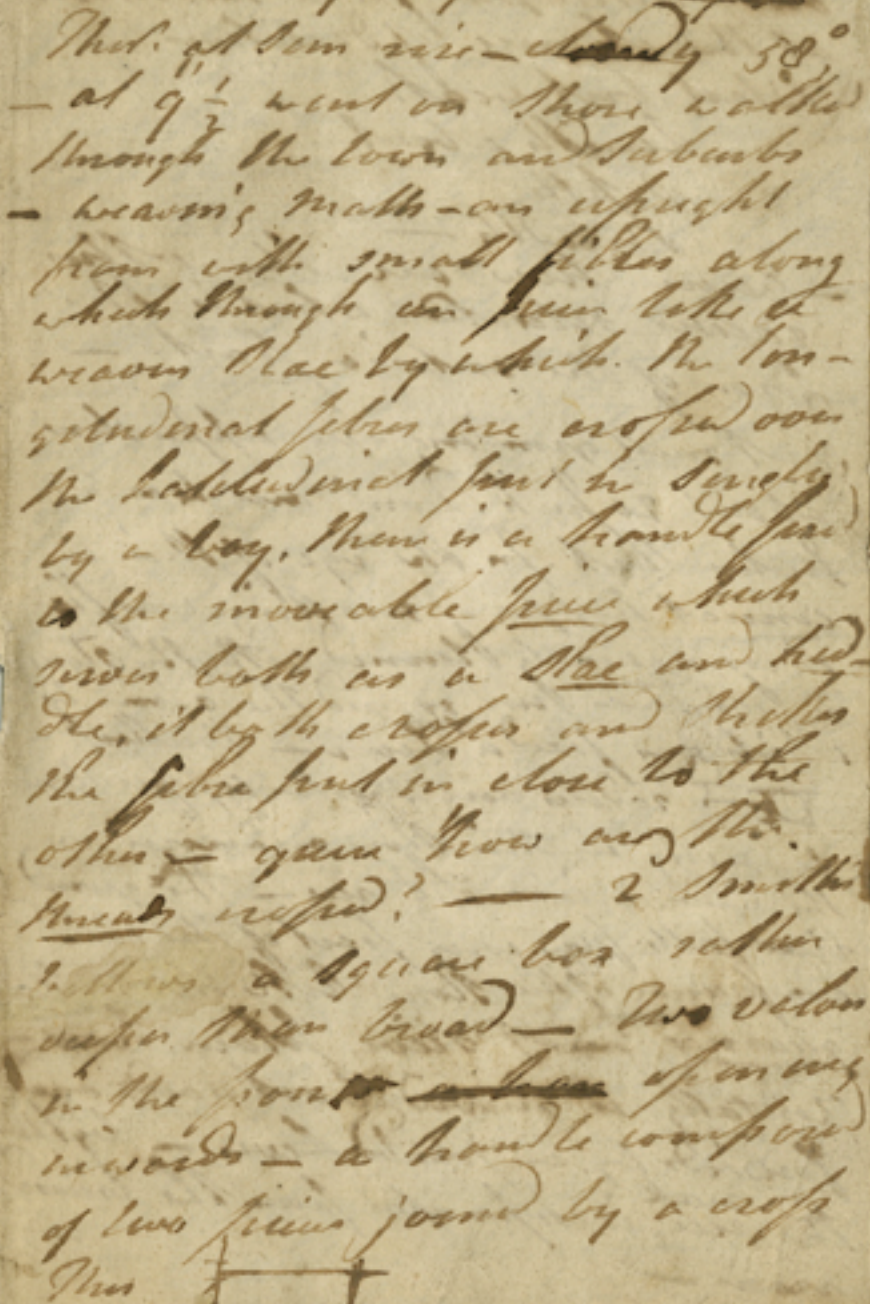 Ther. at Sun rise – cloudy 58°
– at 9 1/2 went on Shore walked
through the town and Suburbs
– weaving matts – an upright
fram with small fibres along
which through an piece like a
weavers Slae by which the lon-
gitudinal fibres are crossed over
the Latitudinal put in singly
by a boy. There is a handle fixed
to the moveable piece which
serves both as a Slae and hed-
dle, it both crosses and strikes
the fibre put in close to the
other – quere how are the
threads crossed? — 2 Smiths
bellows a square box rather
deeper than broad – Two valves
in the front opening
inwards – a handle composed
of two pieces joined by a cross
Thus